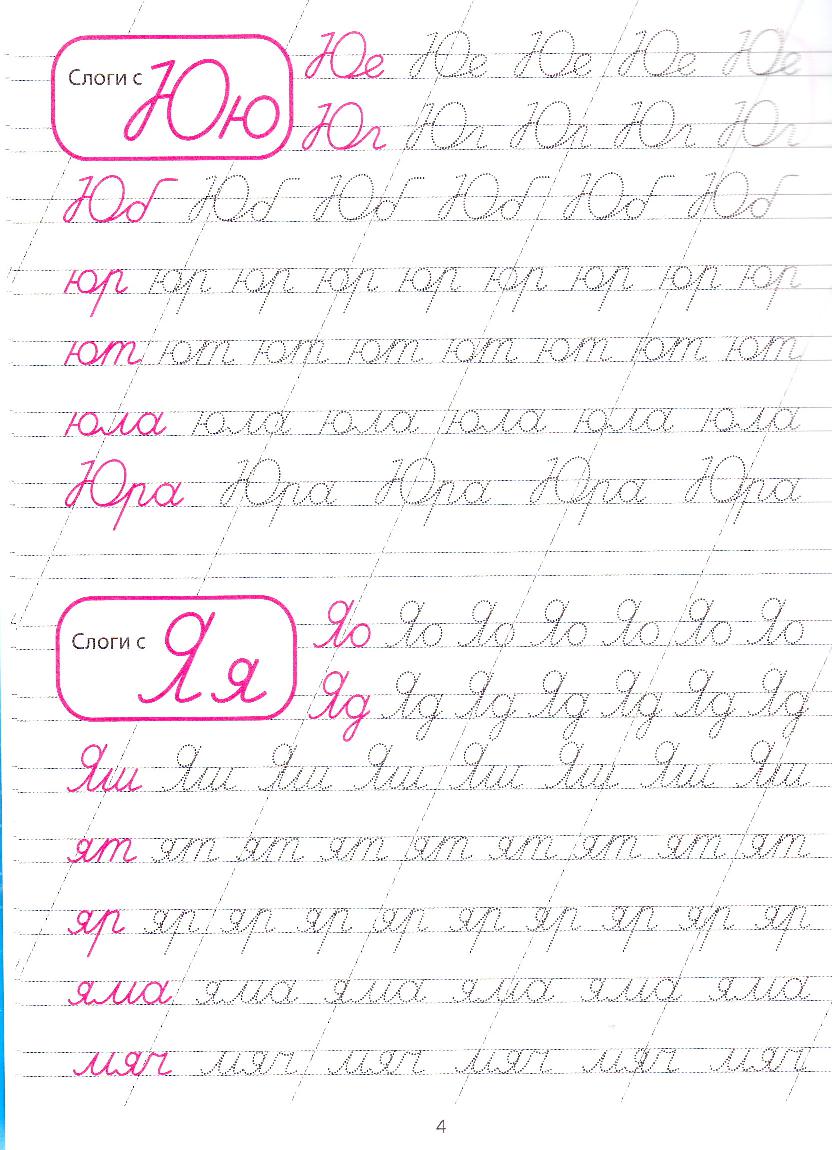 Слоги с Юю
Юе Юе Юе Юе Юе
Юг Юг Юг Юг Юг
Юб Юб Юб Юб Юб Юб
юр юр юр юр юр юр юр юр юр
ют ют ют ют ют ют ют ют
юла юла юла юла юла юла
Юра Юра Юра Юра Юра
Слоги с Яя
Яо Яо Яо Яо Яо Яо Яо
Яд Яд Яд Яд Яд Яд Яд
Яш Яш Яш Яш Яш Яш Яш Яш
ят ят ят ят ят ят ят ят ят
яр яр яр яр яр яр яр яр яр яр
яма яма яма яма яма яма
мяч мяч мяч мяч мяч мяч
4